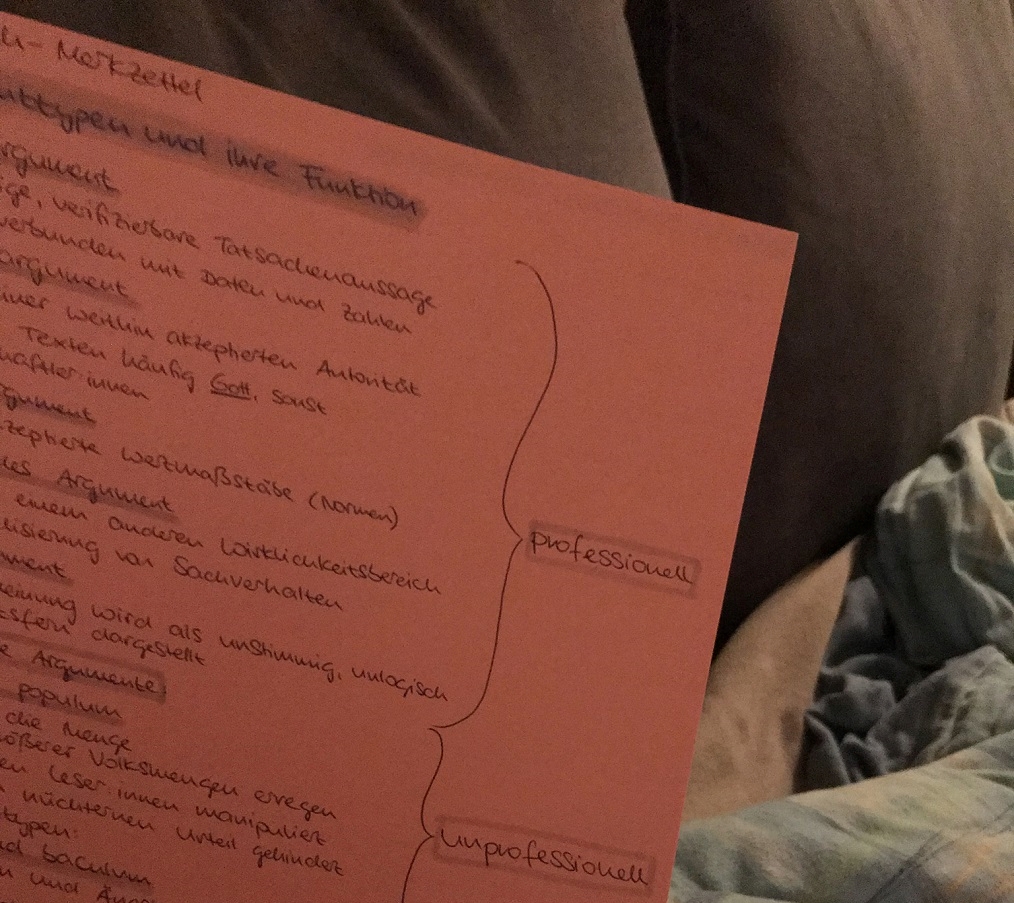 -Merkzettel
typen und ihre Funktion
rgument
ige, verifizierbare Tatsachenaussage
verbunden mit Daten und Zahlen
argument
iner weithin akzeptierten Autorität
Texten häufig Gott, sonst
haftler:innen
gument
zeptierte Wertmaßstäbe (Normen)
les Argument
einem anderen Wirklichkeitsbereich
lisierung von Sachverhalten
ment
einung wird als unstimmig, unlogisch
tsfern dargestellt
professionell
e Argumente
populum
die Menge
ößerer Volksmengen erregen
en Leser:innen manipuliert
n nüchternen Urteil gehindert
typen:
ad baculum
n und Äng
unprofessionell